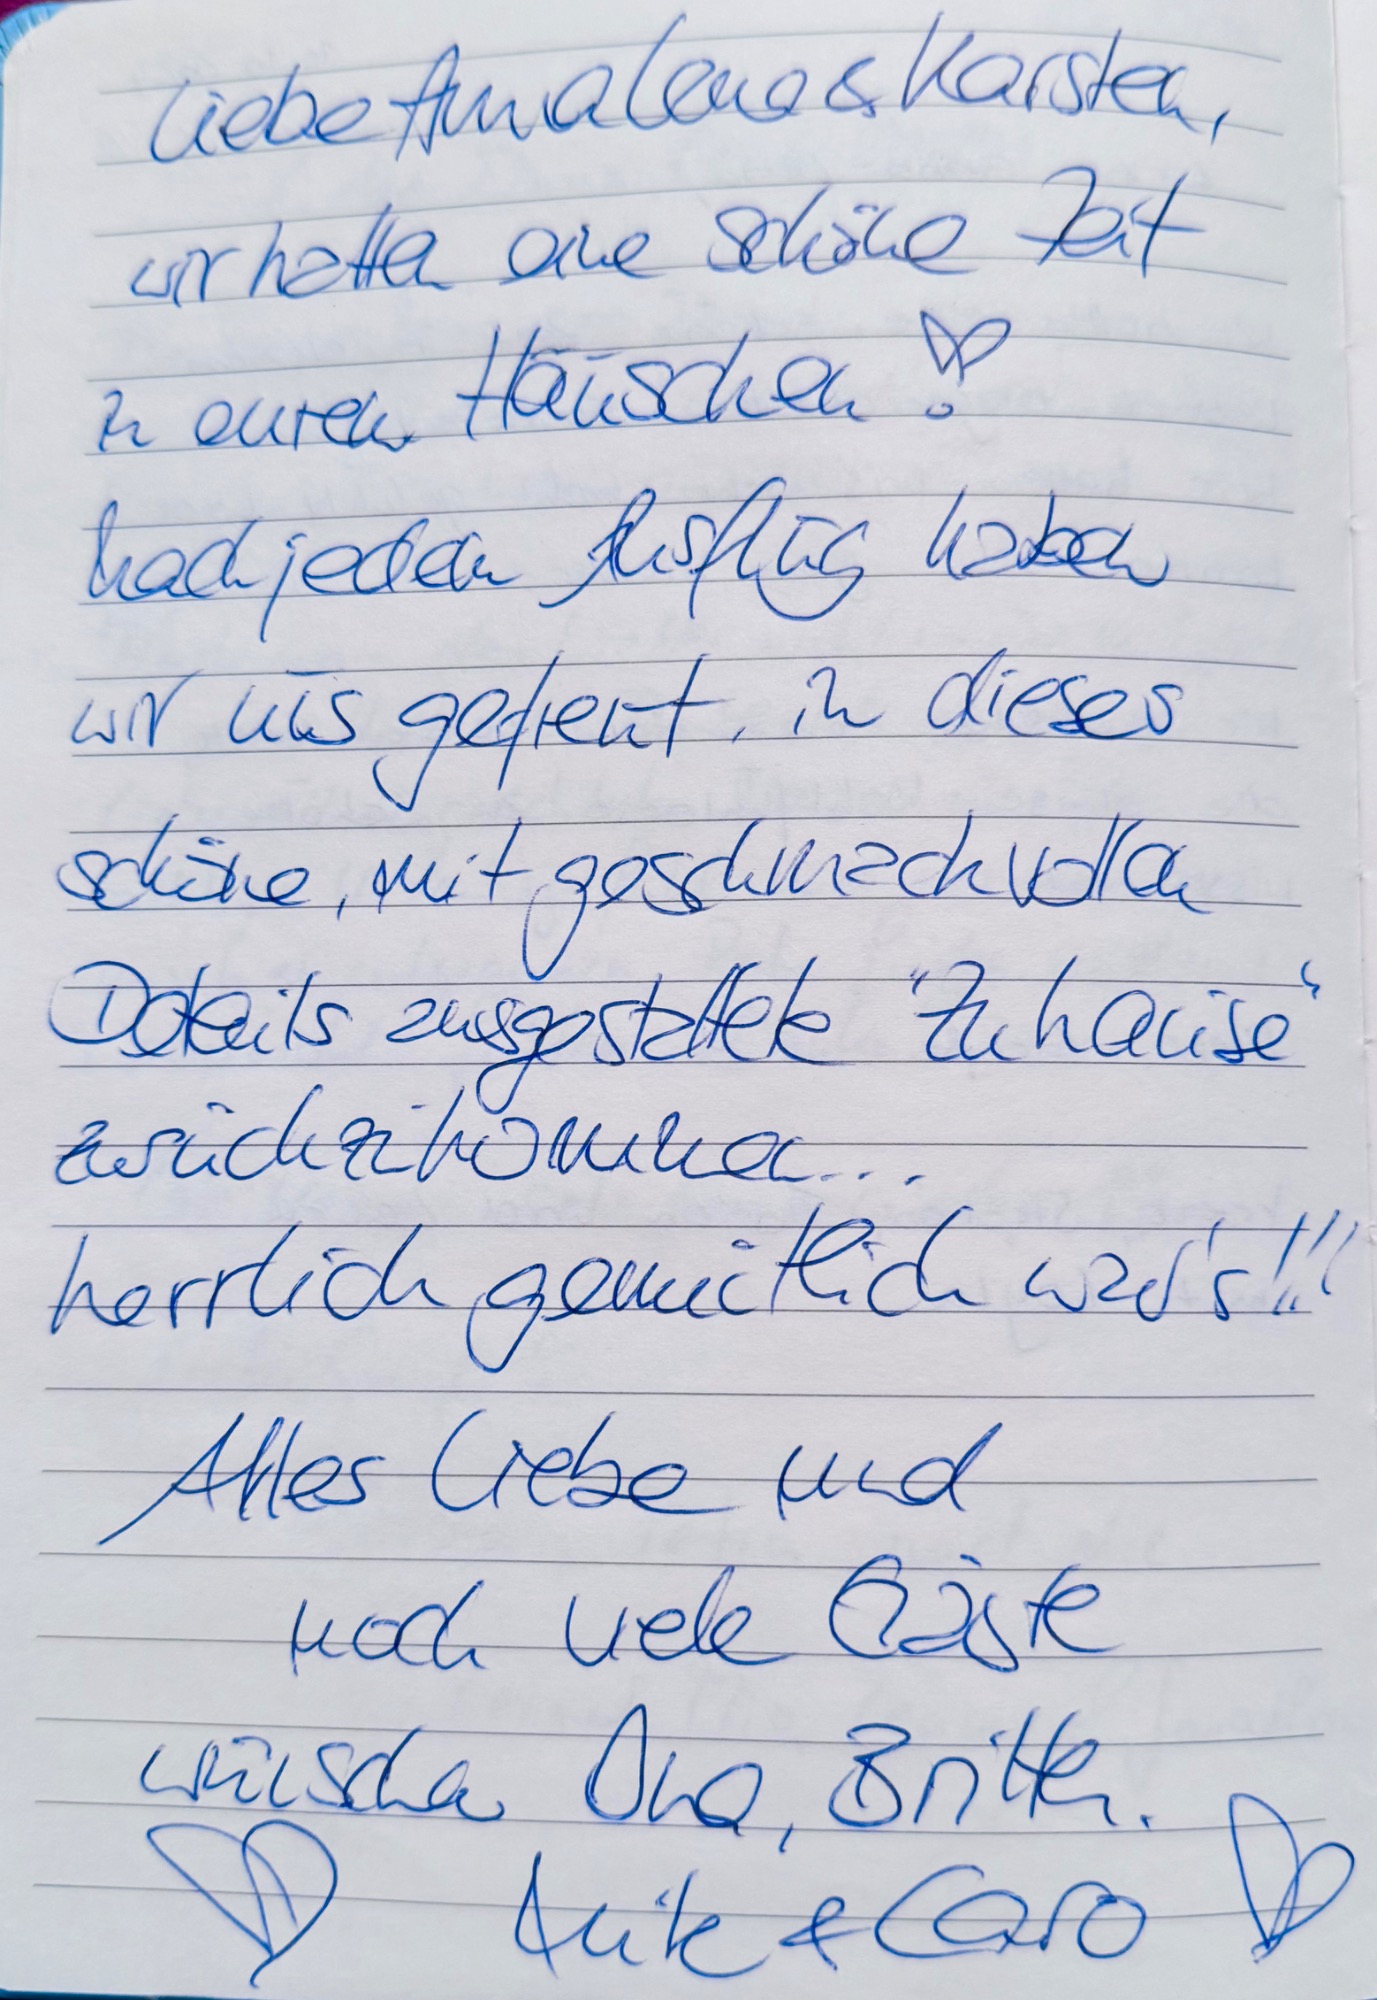 Liebe Annalena & Karsten,
wir hatten eine schöne Zeit
in eurem Häuschen!
Nach jedem Ausflug haben
wir uns gefreut, in dieses
schöne, mit geschmackvollen
Details ausgestattete "Zuhause"
zurückzukommen...
herrlich gemütlich war's!!!
Alles Liebe und
noch viele Gäste
wünschen Ona, Britta,
Anita & Caro